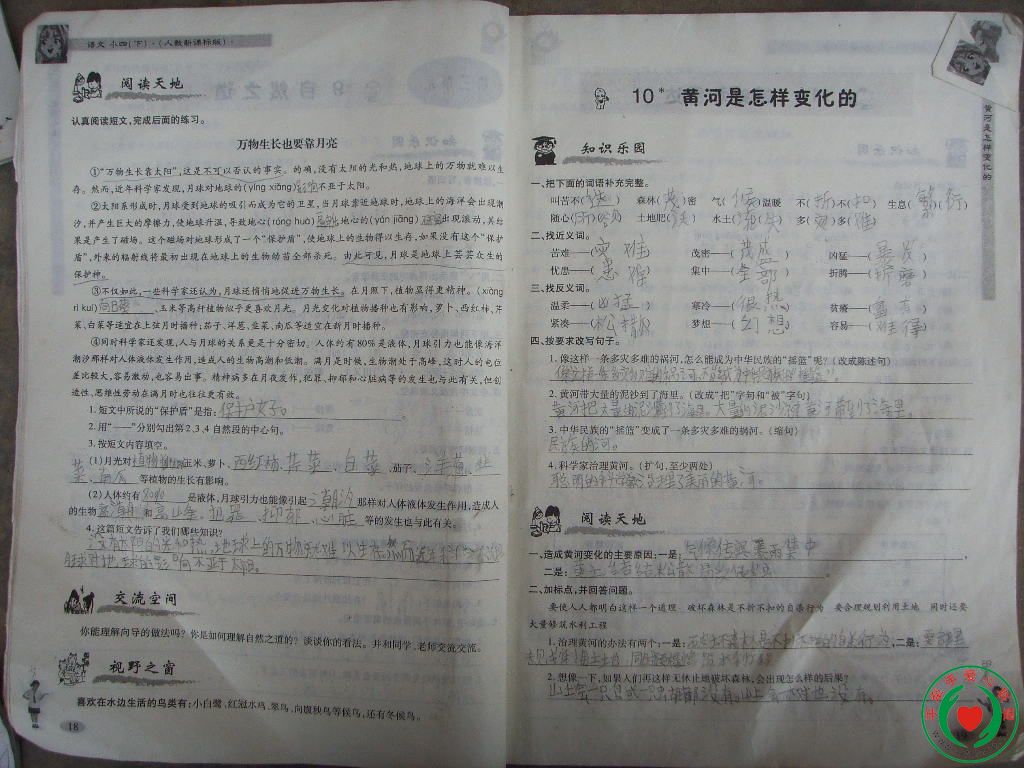 语文 小四(下)·(人教新课标版)·
阅读天地
认真阅读短文,完成后面的练习。
万物生长也要靠月亮
①“万物生长靠太阳”,这是不可以否认的事实。的确,没有太阳的光和热,地球上的万物就难以生
存。然而,近年科学家发现,月球对地球的(yíng xiǎng)影响不亚于太阳。
②太阳系形成时,月球受到地球的吸引而成为它的卫星,当月球靠近地球时,地球上的海洋会出现潮
汐,并产生巨大的摩擦力,使地球升温,导致地心(róng huà)地心的(yán jiāng)岩浆出现滚动,其结
果是产生了磁场。这个磁场对地球形成了一个“保护盾”,使地球上的生物得以生存,如果没有这个“保护
盾”,外来的辐射线将最初出现在地球上的生物幼苗全部杀死。由此可见,月球是地球上芸芸众生的
保护神。
③不仅如此,一些科学家还认为,月球还悄悄地促进万物生长。在月照下,植物显得更精神。(xiàng
rì kuí)向日葵、玉米等高杆植物似乎更喜欢月光。月光变化对植物播种也有影响,萝卜、西红柿、芹
菜、白菜等适宜在上弦月时播种;茄子、洋葱、韭菜、南瓜等适宜在新月时播种。
④同时科学家还发现,人与月球的关系更是十分密切。人体约有80%是液体,月球引力也能像海洋
潮汐那样对人体液体发生作用,造成人的生物高潮和低潮。满月是时候,生物潮处于高峰,这对人的电位
差比较大,容易激动,也容易出事。精神病多在月夜发作,犯罪、抑郁和心脏病等的发生也与此有关,但创
造性、思维性劳动在满月时也往往更有效。
1. 短文中所说的“保护盾”是指:保护女子。
2. 用“——”分别勾出第2、3、4自然段的中心句。
3. 按短文内容填空。
(1)月光对植物 玉米、萝卜、西红柿、芹菜、白菜、茄子、洋葱、韭
菜、南瓜等植物的生长有影响。
(2)人体约有80%是液体,月球引力也能像引起潮汐那样对人体液体发生作用,造成人
的生物高潮和 、犯罪、抑郁、心脏等的发生也与此有关。
4. 这篇短文告诉了我们哪些知识?
没有太阳的光和热,地球上的万物就难以生存,然而近年科学家发现
月球对地球的影响不亚于太阳。
交流空间
你能理解向导的做法吗?你是如何理解自然之道的?谈谈你的看法。并和同学、老师交流交流。
视野之窗
喜欢在水边生活的鸟类有:小白鹭、红冠水鸡、翠鸟、向腹秧鸟等候鸟,还有冬候鸟。
18
10* 黄河是怎样变化的
黄河是怎样变化的
知识乐园
一、把下面的词语补充完整。
叫苦不(迭) 森林(茂)密 气(候)温暖 不(折)不(扣) 生息(繁)(衍)
随心(所)(欲) 土地肥(沃) 水土(流)(失) 多(灾)多(难)
二、找近义词。
苦难——(灾难) 茂密——(茂盛) 凶猛——(暴发)
忧患——(患难) 集中——(全部) 折腾——(折磨)
三、找反义词。
温柔——(凶猛) 寒冷——(很热) 贫瘠——(富有)
紧凑——(松散) 梦想——(幻想) 容易——(难得)
四、按要求改写句子。
1. 像这样一条多灾多难的祸河,怎么能成为中华民族的“摇篮”呢?(改成陈述句)
2. 黄河带大量的泥沙到了海里。(改成“把”字句和“被”字句)
黄河把大量的泥沙带到了海里。大量的泥沙被黄河带到了海里。
3. 中华民族的“摇篮”变成了一条多灾多难的祸河。(缩句)
4. 科学家治理黄河。(扩句,至少两处)
聪明的科学家治理了美丽的黄河。
阅读天地
一、造成黄河变化的主要原因:一是:气候 暴雨集中
二是:
二、加标点,并回答问题。
要使人人都明白这样一个道理 破坏森林是不折不扣的自杀行为 要合理规划利用土地 同时还要
大量修筑水利工程
1. 治理黄河的办法有两个:一是: ,二是:
2. 想像一下,如果人们再这样无休止地破坏森林,会出现怎么样的后果?